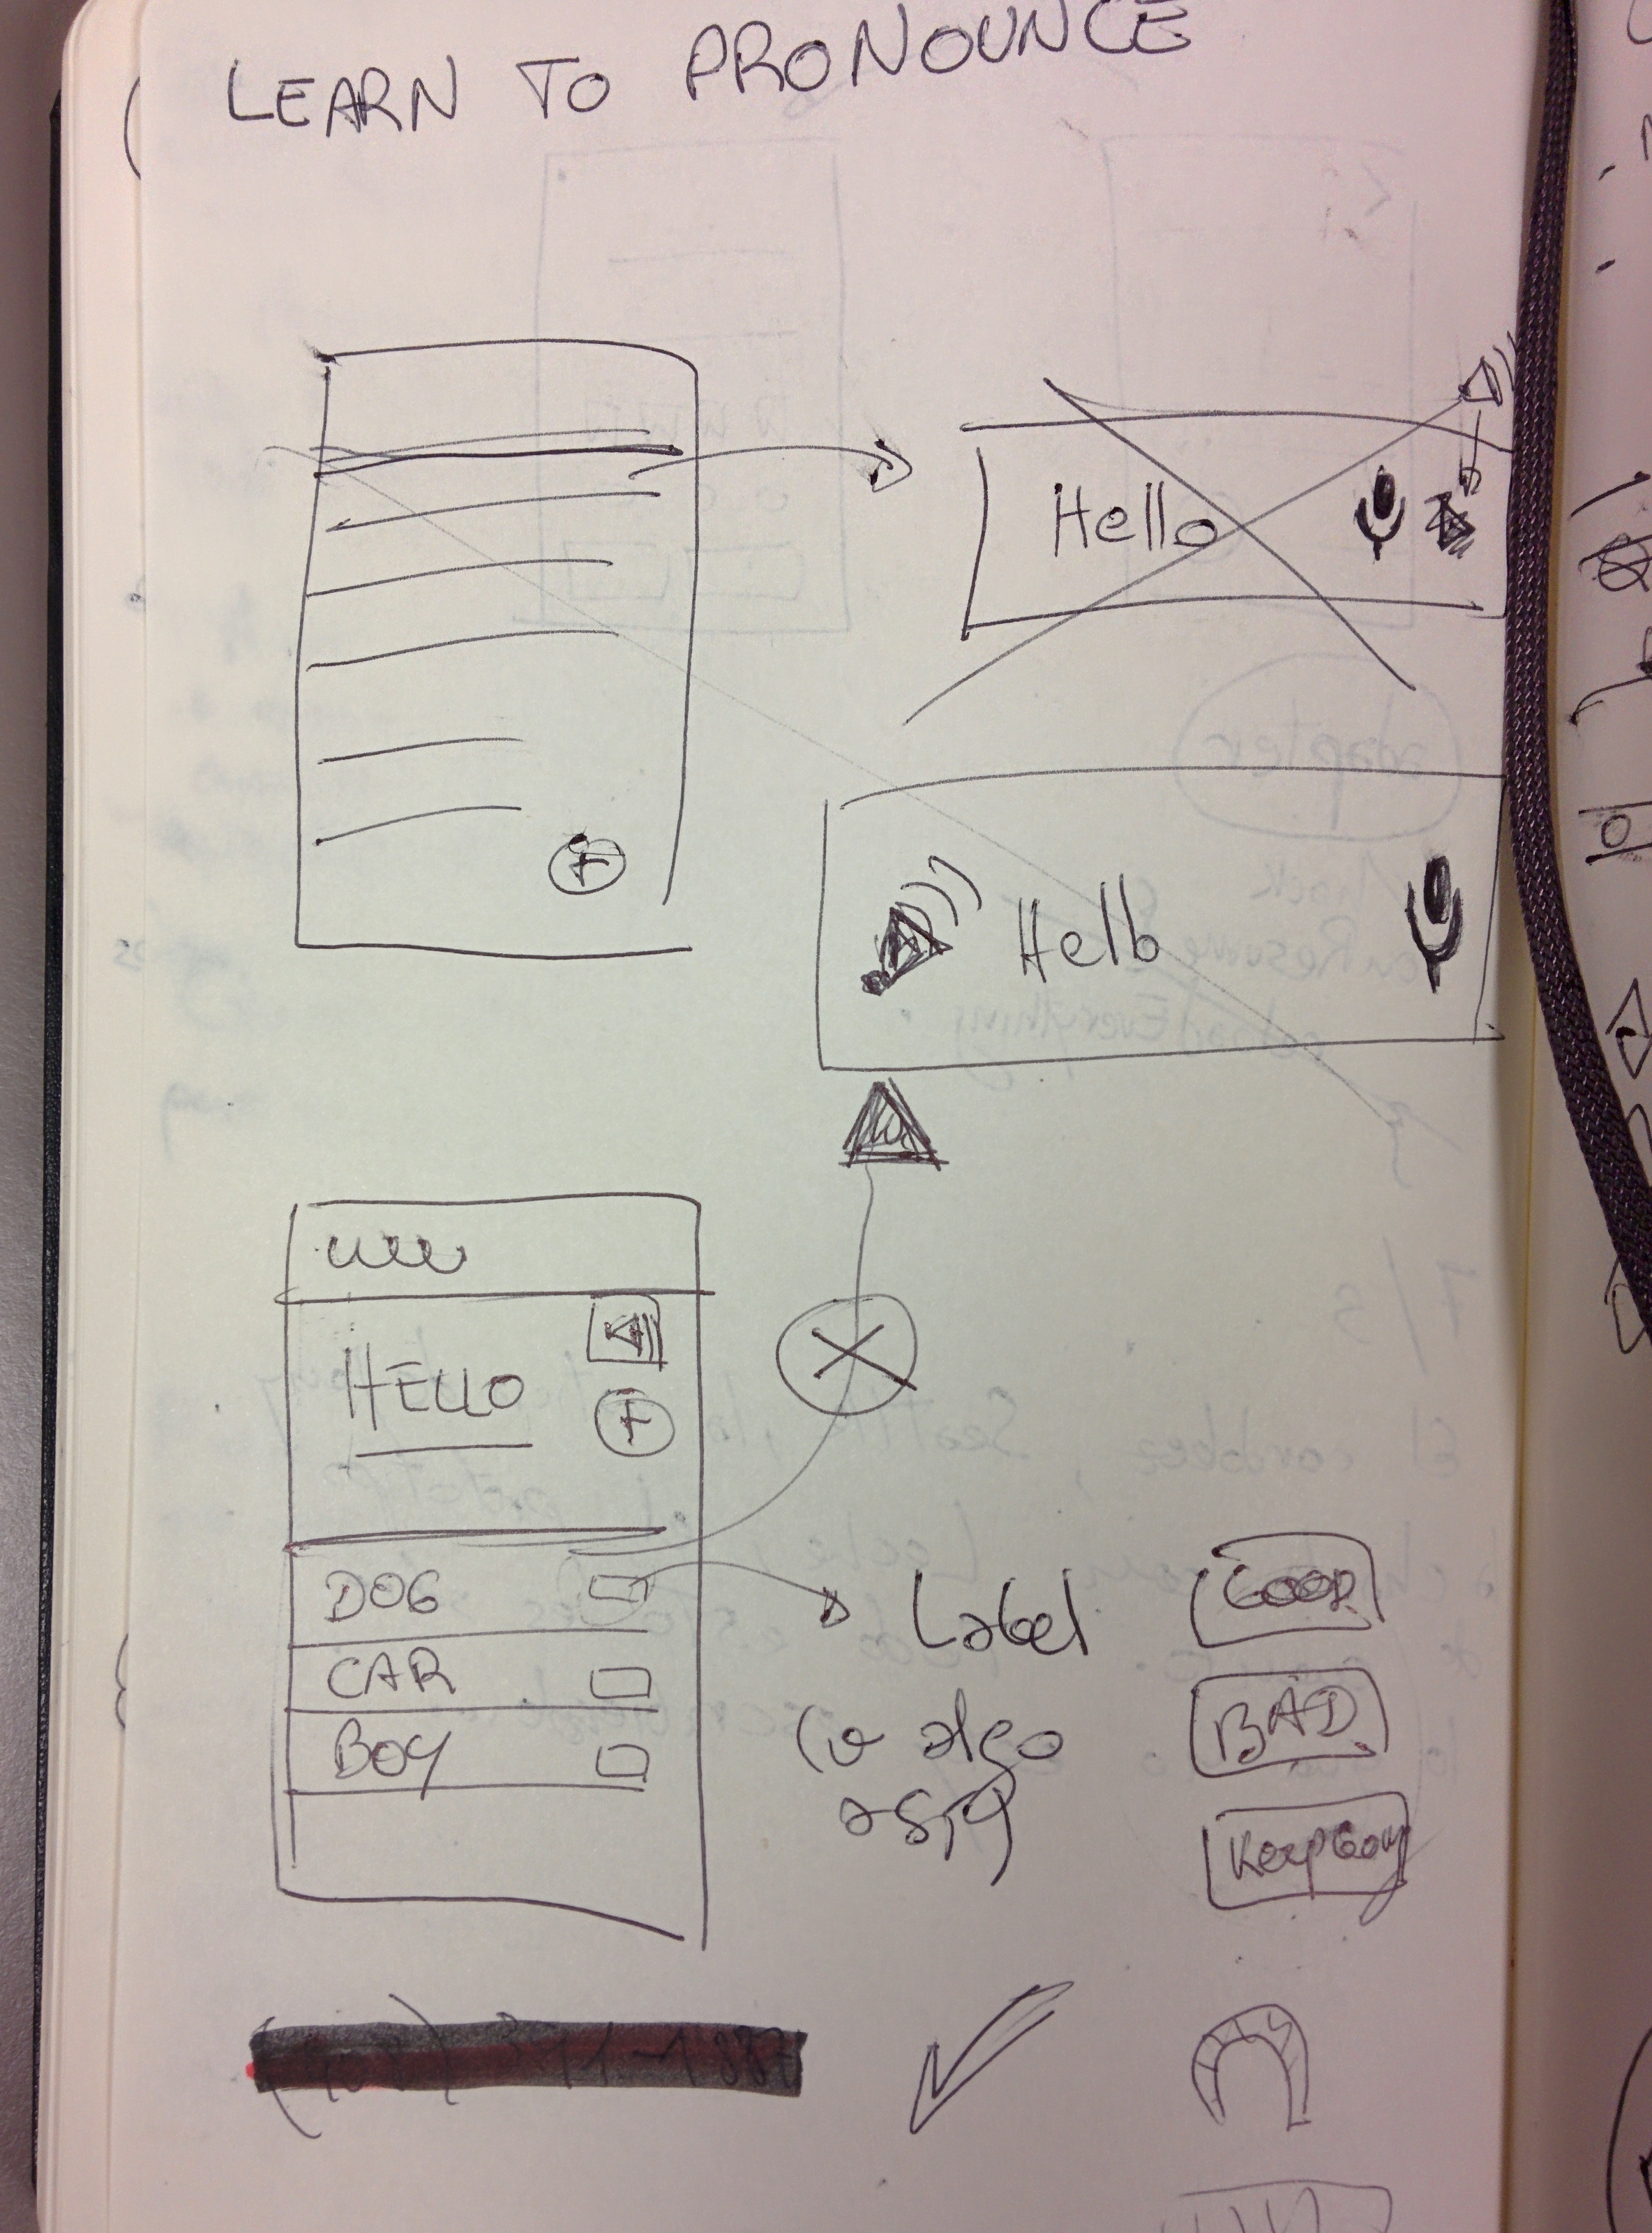 LEARN TO PRONOUNCE
Hello
Hello
HELLO
DOG
CAR
BOY
Label
(o algo
así)
GOOD
BAD
Keep Going